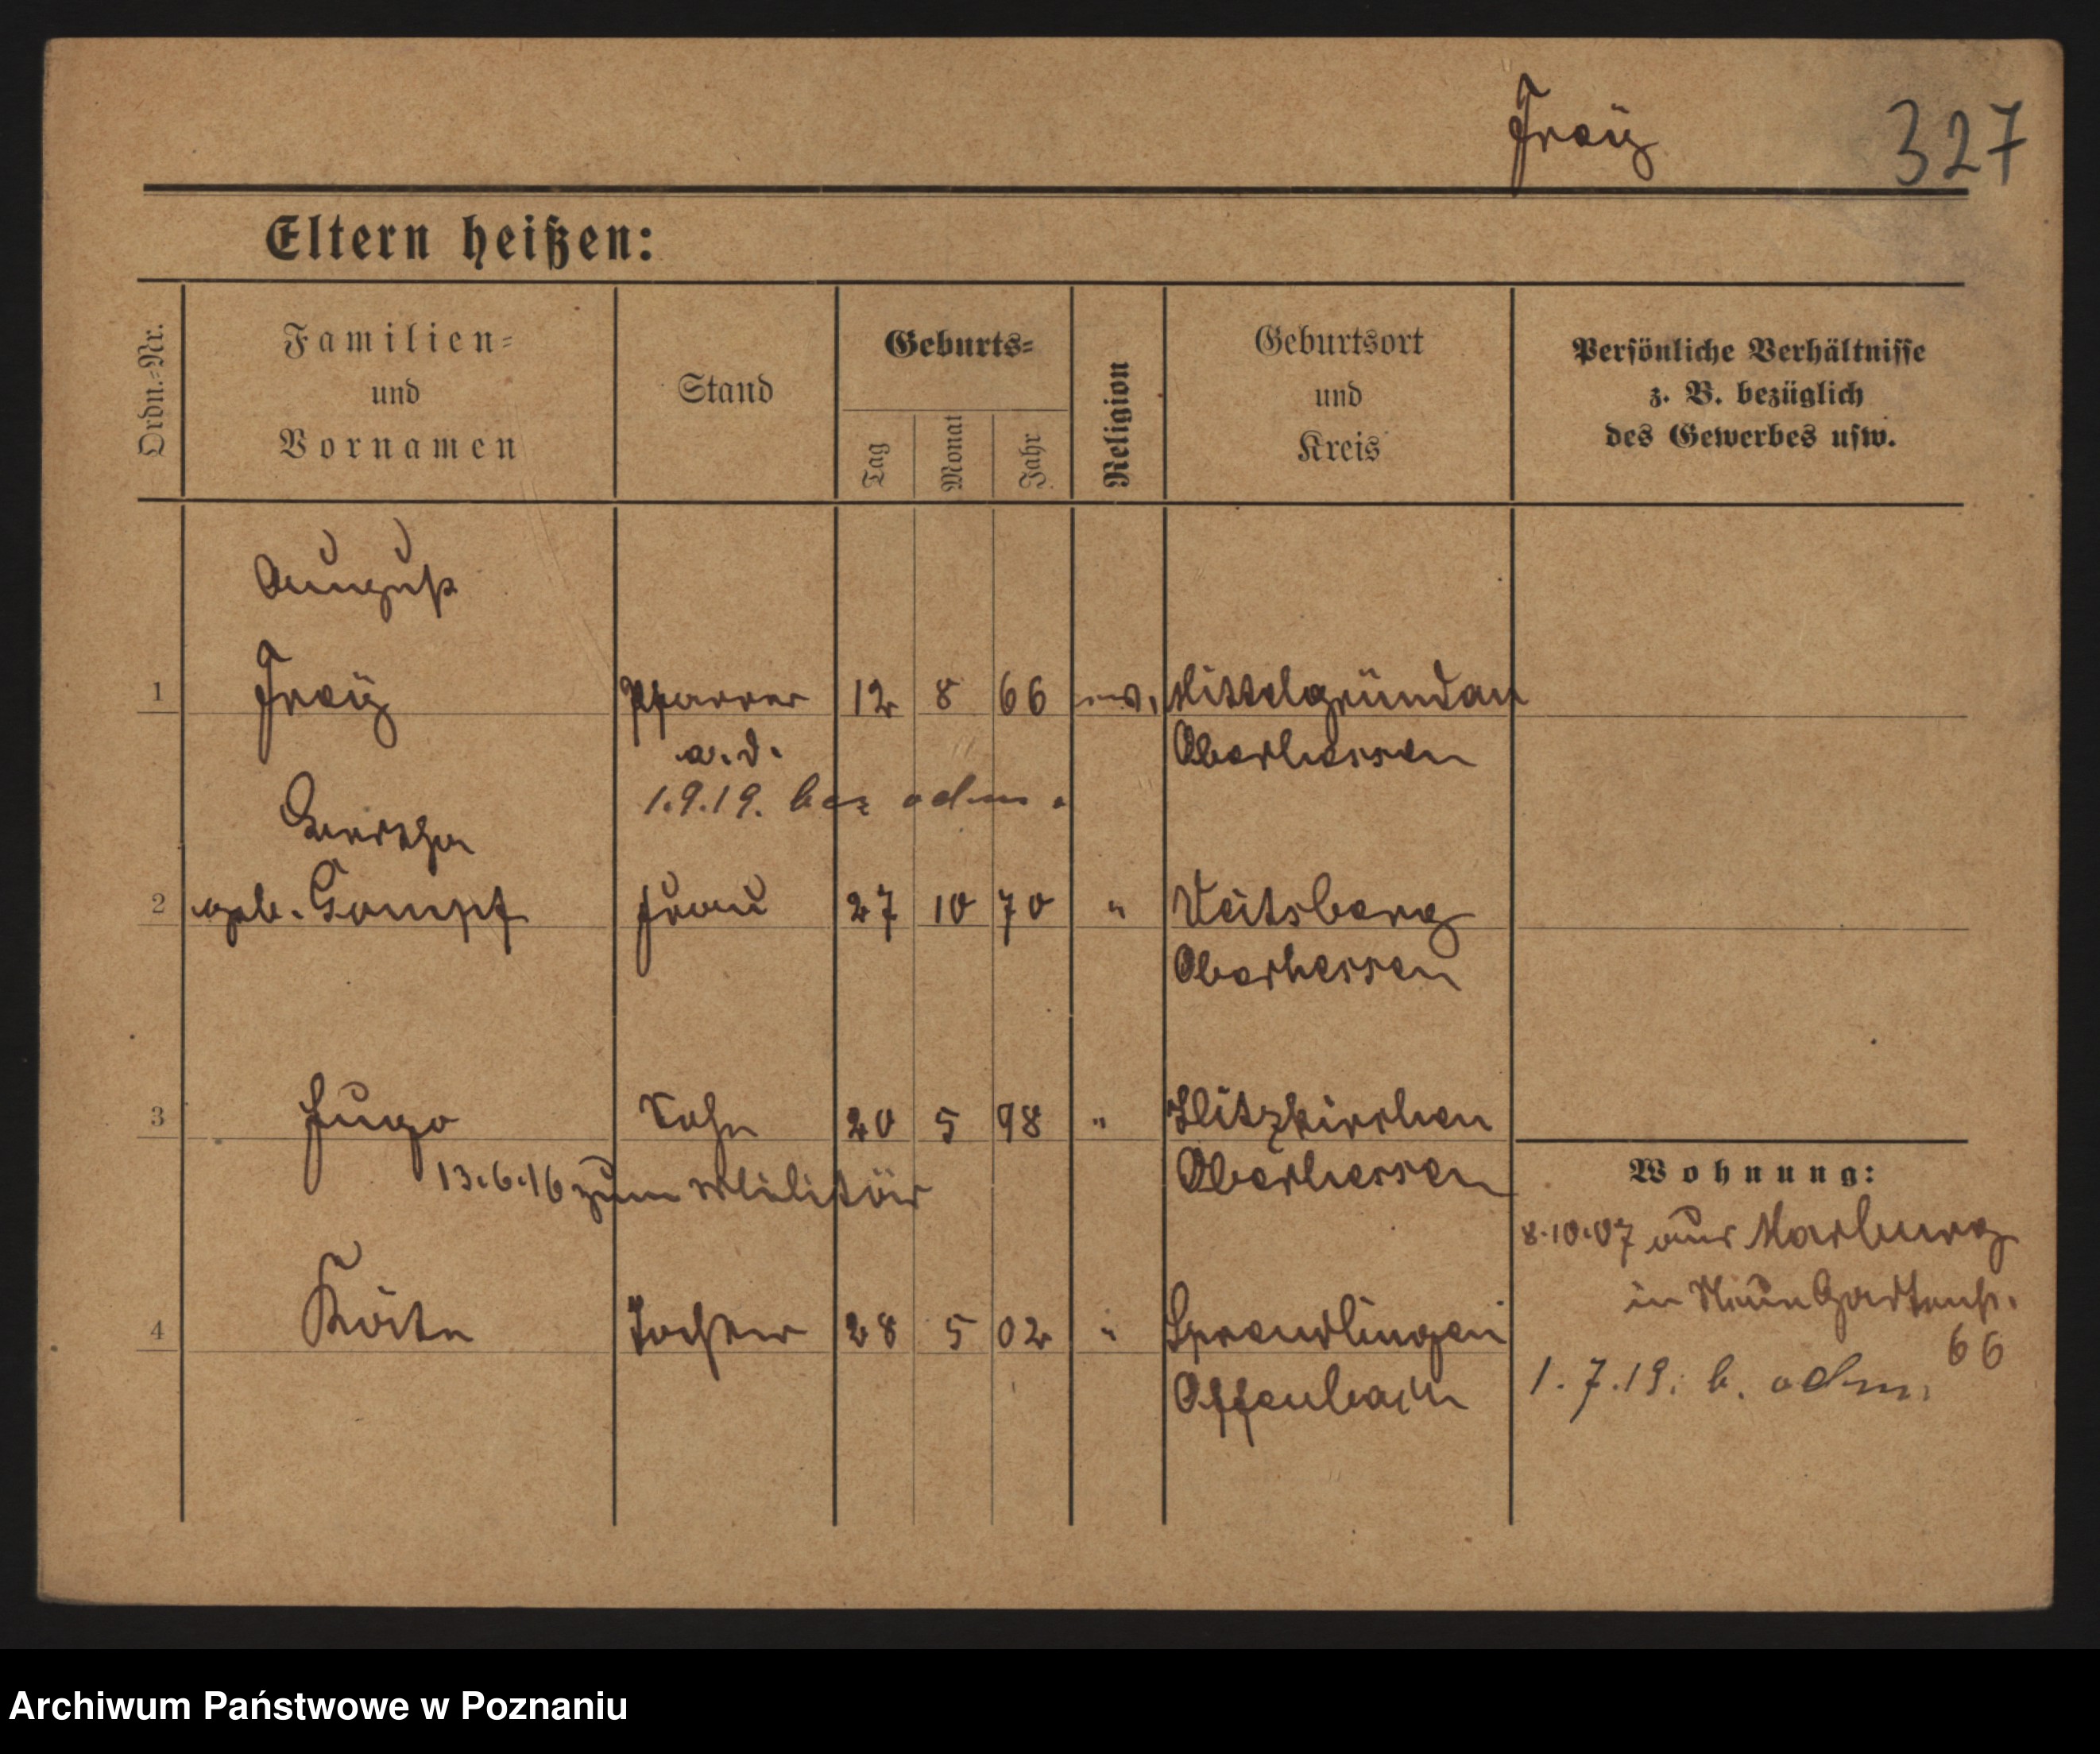 Fraÿ 327
Eltern heißen:
Ordn.=Nr.
Familien=
und
Vornamen
Stand
Geburts=
Tag
Monat
Jahr
Religion
Geburtsort
und
Kreis
Persönliche Verhältnisse
z. B. bezüglich
des Gewerbes usw.
August
1 Pfarrer 12 8 66 ev. Mittelgründau
a. D. Oberhessen
1.9.19. bez adm.
Bertha
2 geb. Gompf Frau 27 10 70 " Veitsberg
Oberhessen
3 Hugo Sohn 20 5 98 " Hitzkirchen
13.6.16 zum Militär Oberhessen
Wohnung:
8.10.07 aus Marburg
in Neue Gartenst.
66
4 Käte Tochter 28 5 02 " Sprendlingen
Offenbach
1.7.19. b. adm.
Archiwum Państwowe w Poznaniu